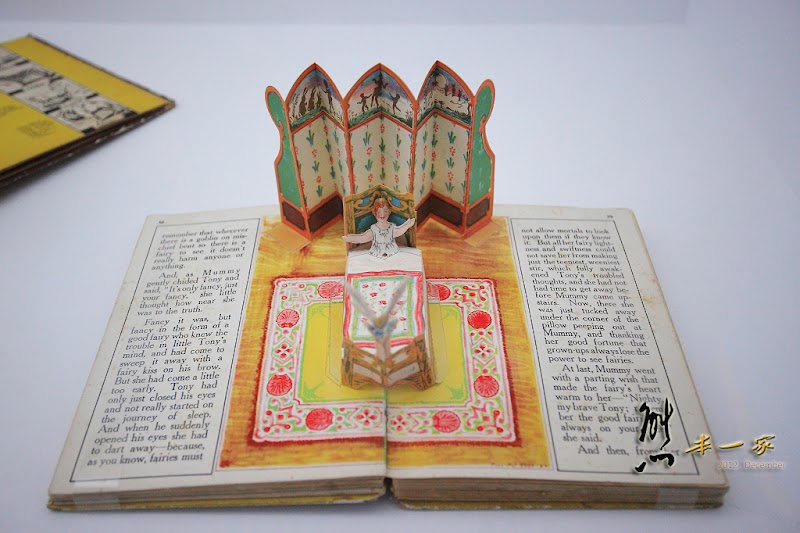 remember that whenever
there is a goblin on mis-
chief bent so there is a
fairy to see it doesn't
really harm anyone or
anything.
And, as Mummy
gently chided Tony and
said, "It's only fancy, just
your fancy," she little
thought how near she
was to the truth.
Fancy it was, but
fancy in the form of a
good fairy who knew the
trouble in little Tony's
mind, and had come to
sweep it away with a
fairy kiss on his brow.
But she had come a little
too early. Tony had
only just closed his eyes
and not really started on
the journey of sleep.
And when he suddenly
opened his eyes she had
to dart away—because,
as you know, fairies must
not allow mortals to look
upon them if they know
it. But all her fairy light-
ness and swiftness could
not save her from making
just the teeniest, weeniest
stir, which fully awak-
ened Tony's troubled
thoughts, and she had not
had time to get away be-
fore Mummy came up-
stairs. Now, there she
was just tucked away
under the corner of the
pillow peeping out at
Mummy, and thanking
her good fortune that
grown-ups always lose the
power to see fairies.
At last, Mummy went
with a parting wish that
made the fairy's heart
warm to her—"Nighty
my brave Tony;
ber the good fair
always on your
she said.
And then, from
熊
本一家
2012 November